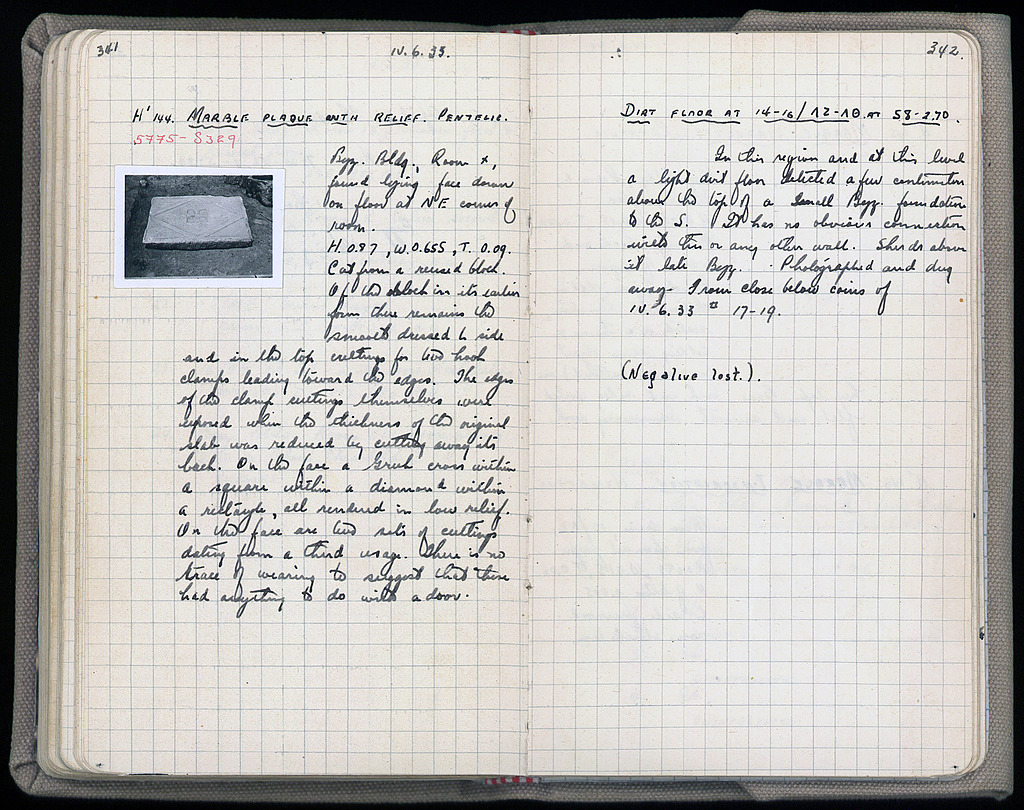 341
IV. 6. 33.
H' 144. MARBLE PLAQUE WITH RELIEF. PENTELIC.
5775 - S329
Byz. Bldg., Room X,
found lying face down
on floor at NE corner of
room.
H. 0.87, W. 0.655, T. 0.09.
Cut from a reused block.
Of the block in its earlier
form there remains the
smooth dressed L side
and in the top cuttings for two hook
clamps leading toward the edges. The edges
of the clamp cuttings themselves were
exposed when the thickness of the original
slab was reduced by cutting away its
back. On the face a Greek cross within
a square within a diamond within
a rectangle, all rendered in low relief.
On the face are two sets of cuttings
dating from a third usage. There is no
trace of wearing to suggest that these
had anything to do with a door.
342.
DIRT FLOOR AT 14-16/ΛΖ-ΛΘ AT 58-2.70.
In this region and at this level
a light dirt floor detected a few centimeters
above the top of a small Byz. foundation
to the S. It has no obvious connection
with this or any other wall. Sherds above
it late Byz. Photographed and dug
away. From close below coins of
IV. 6. 33 # 17-19.
(Negative lost.).